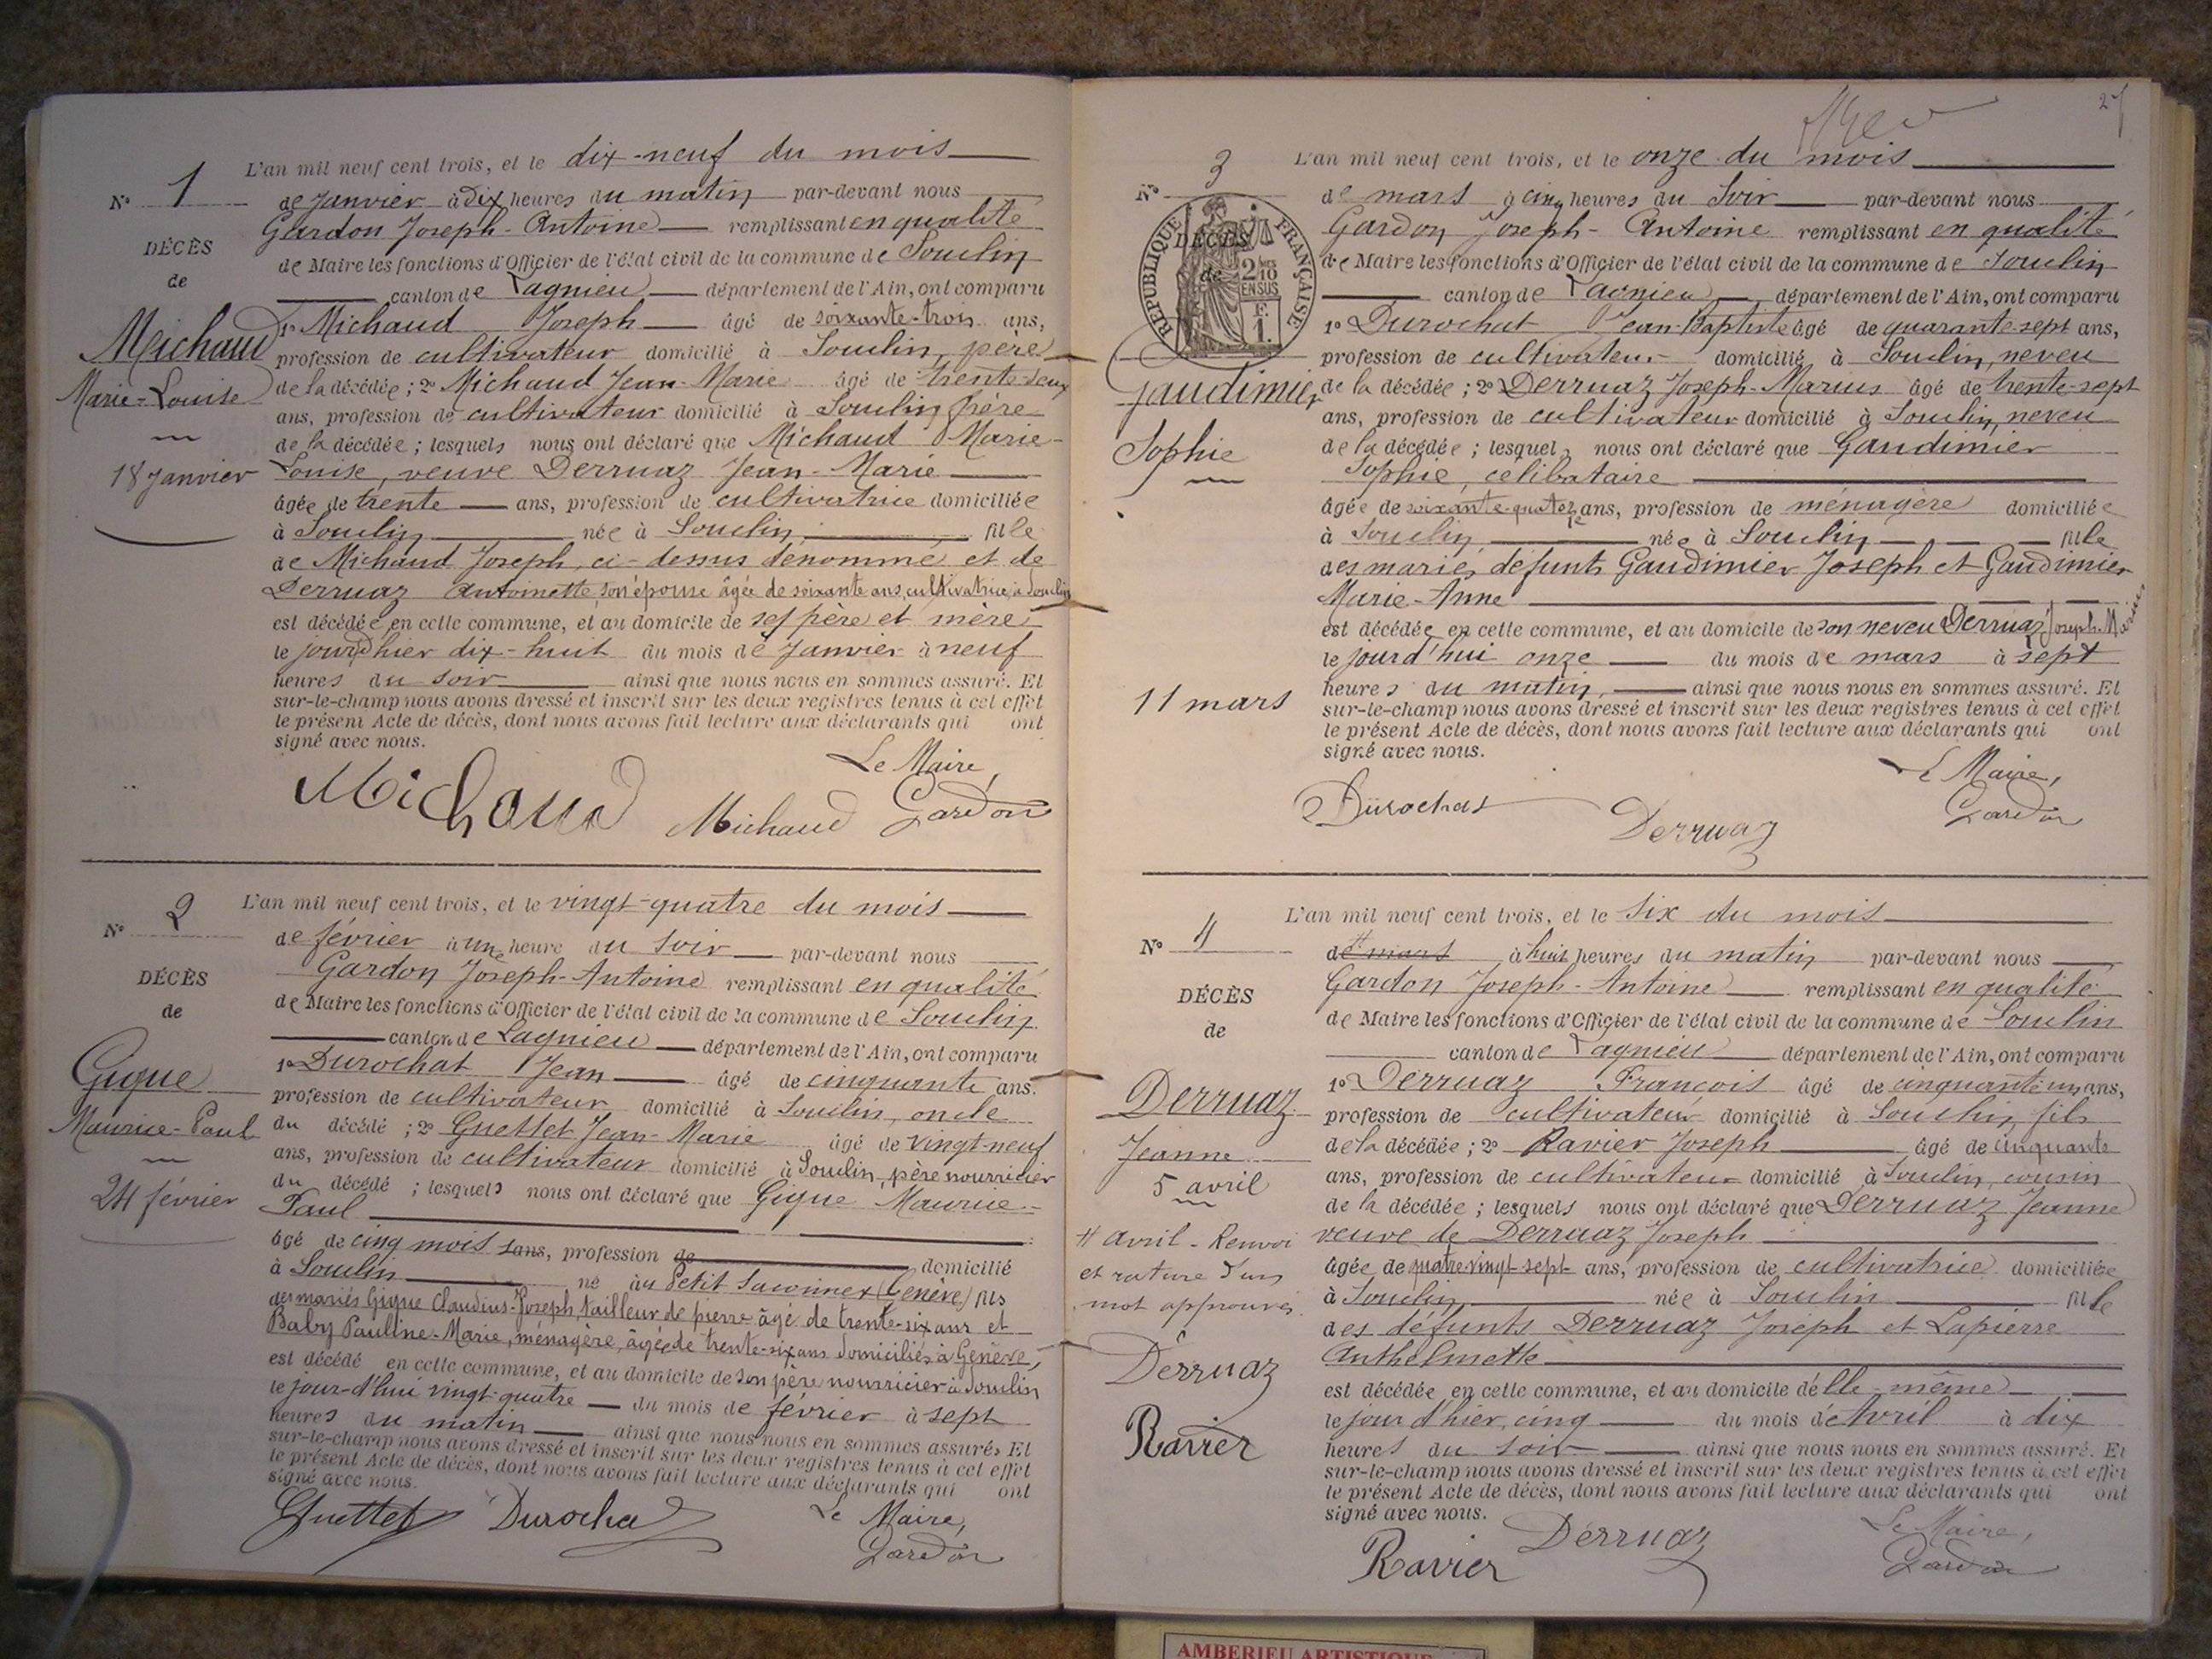 N° 1
DÉCÈS
de
Michaud
Marie-Louise
18 Janvier
L'an mil neuf cent trois, et le dix-neuf du mois
de Janvier à dix heures du matin par-devant nous
Gardon Joseph-Antoine remplissant en qualité
de Maire les fonctions d'Officier de l'état civil de la commune de Souclin
canton de Lagnieu département de l'Ain, ont comparu
1° Michaud Joseph âgé de soixante-trois ans,
profession de cultivateur domicilié à Souclin, père
de la décédée ; 2° Michaud Jean-Marie âgé de trente-deux
ans, profession de cultivateur domicilié à Souclin frère
de la décédée ; lesquels nous ont déclaré que Michaud Marie-
Louise, veuve Derruaz Jean-Marie
âgée de trente ans, profession de cultivatrice domiciliée
à Souclin née à Souclin fille
de Michaud Joseph, ci-dessus dénommé et de
Derruaz Antoinette, son épouse âgée de soixante ans, cultivatrice à Souclin
est décédée en cette commune, et au domicile de ses père et mère
le jour d'hier dix-huit du mois de Janvier à neuf
heures du soir ainsi que nous nous en sommes assuré. Et
sur-le-champ nous avons dressé et inscrit sur les deux registres tenus à cet effet
le présent Acte de décès, dont nous avons fait lecture aux déclarants qui ont
signé avec nous.
Le Maire,
Michaud Michaud Gardon
N° 2
DÉCÈS
de
Gigue
Maurice-Paul
24 février
L'an mil neuf cent trois, et le vingt-quatre du mois
de février à une heure du soir par-devant nous
Gardon Joseph-Antoine remplissant en qualité
de Maire les fonctions d'Officier de l'état civil de la commune de Souclin
canton de Lagnieu département de l'Ain, ont comparu
1° Durochat Jean âgé de cinquante ans.
profession de cultivateur domicilié à Souclin, oncle
du décédé ; 2° Guettet Jean-Marie âgé de vingt-neuf
ans, profession de cultivateur domicilié à Souclin, père nourricier
du décédé ; lesquels nous ont déclaré que Gigue Maurice-
Paul
âgé de cinq mois sans, profession de domicilié
à Souclin né au Petit Saconnex (Genève) fils
des mariés Gigue Claudius-Joseph, tailleur de pierre âgé de trente-six ans et
Baby Pauline-Marie, ménagère, âgée de trente-six ans domiciliés à Genève,
est décédé en cette commune, et au domicile de son père nourricier à Souclin
le jour-d'hui vingt-quatre du mois de février à sept
heures du matin ainsi que nous nous en sommes assurés Et
sur-le-champ nous avons dressé et inscrit sur les deux registres tenus à cet effet
le présent Acte de décès, dont nous avons fait lecture aux déclarants qui ont
signé avec nous.
Guettet Durochat Le Maire,
Gardon
N° 3
DÉCÈS
de
RÉPUBLIQUE FRANÇAISE
2/10
EN SUS
F.
1.
Gaudimier
Sophie
11 mars
L'an mil neuf cent trois, et le onze du mois
de mars à cinq heures du soir par-devant nous
Gardon Joseph-Antoine remplissant en qualité
de Maire les fonctions d'Officier de l'état civil de la commune de Souclin
canton de Lagnieu département de l'Ain, ont comparu
1° Durochat Jean-Baptiste âgé de quarante-sept ans,
profession de cultivateur domicilié à Souclin, neveu
de la décédée ; 2° Derruaz Joseph-Marius âgé de trente-sept
ans, profession de cultivateur domicilié à Souclin, neveu
de la décédée ; lesquels nous ont déclaré que Gaudimier
Sophie, célibataire
âgée de soixante-quatorze ans, profession de ménagère domiciliée
à Souclin née à Souclin fille
des mariés défunts Gaudimier Joseph et Gaudimier
Marie-Anne
est décédée en cette commune, et au domicile de son neveu Derruaz Joseph-Marius
le jour d'hui onze du mois de mars à sept
heures du matin, ainsi que nous nous en sommes assuré. Et
sur-le-champ nous avons dressé et inscrit sur les deux registres tenus à cet effet
le présent Acte de décès, dont nous avons fait lecture aux déclarants qui ont
signé avec nous.
Le Maire,
Durochat Derruaz Gardon
N° 4
DÉCÈS
de
Derruaz
Jeanne
5 avril
# avril - Renvoi
et rature d'un
mot approuvés
Derruaz
Ravier
L'an mil neuf cent trois, et le six du mois
de # mars à huit heures du matin par-devant nous
Gardon Joseph-Antoine remplissant en qualité
de Maire les fonctions d'Officier de l'état civil de la commune de Souclin
canton de Lagnieu département de l'Ain, ont comparu
1° Derruaz François âgé de cinquante un ans,
profession de cultivateur domicilié à Souclin, fils
de la décédée ; 2° Ravier Joseph âgé de cinquante
ans, profession de cultivateur domicilié à Souclin, cousin
de la décédée ; lesquels nous ont déclaré que Derruaz Jeanne
veuve de Derruaz Joseph
âgée de quatre vingt sept ans, profession de cultivatrice domiciliée
à Souclin née à Souclin fille
des défunts Derruaz Joseph et Lapierre
Anthelmette
est décédée en cette commune, et au domicile d'elle-même
le jour d'hier, cinq du mois d'Avril à dix
heures du soir ainsi que nous nous en sommes assuré. Et
sur-le-champ nous avons dressé et inscrit sur les deux registres tenus à cet effet
le présent Acte de décès, dont nous avons fait lecture aux déclarants qui ont
signé avec nous.
Ravier Derruaz Le Maire,
Gardon
AMBERIEU ARTISTIQUE